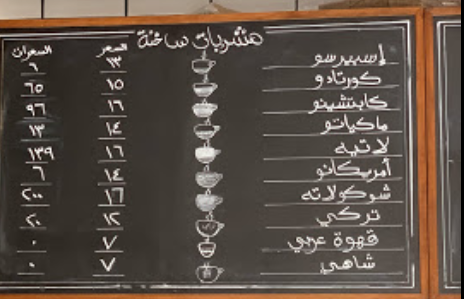 مشروبات ساخنة
السعر السعرات
إسبيرسو ١٣ ٦
كورتادو ١٥ ٦٥
كابتشينو ١٦ ٩٦
ماكياتو ١٤ ١٣
لاتيه ١٦ ١٣٩
أمريكانو ١٤ ٦
شوكولاته ١٦ ٢٠٠
تركي ١٢ ٢٠
قهوة عربي ٧ ٠
شاهي ٧ ٠